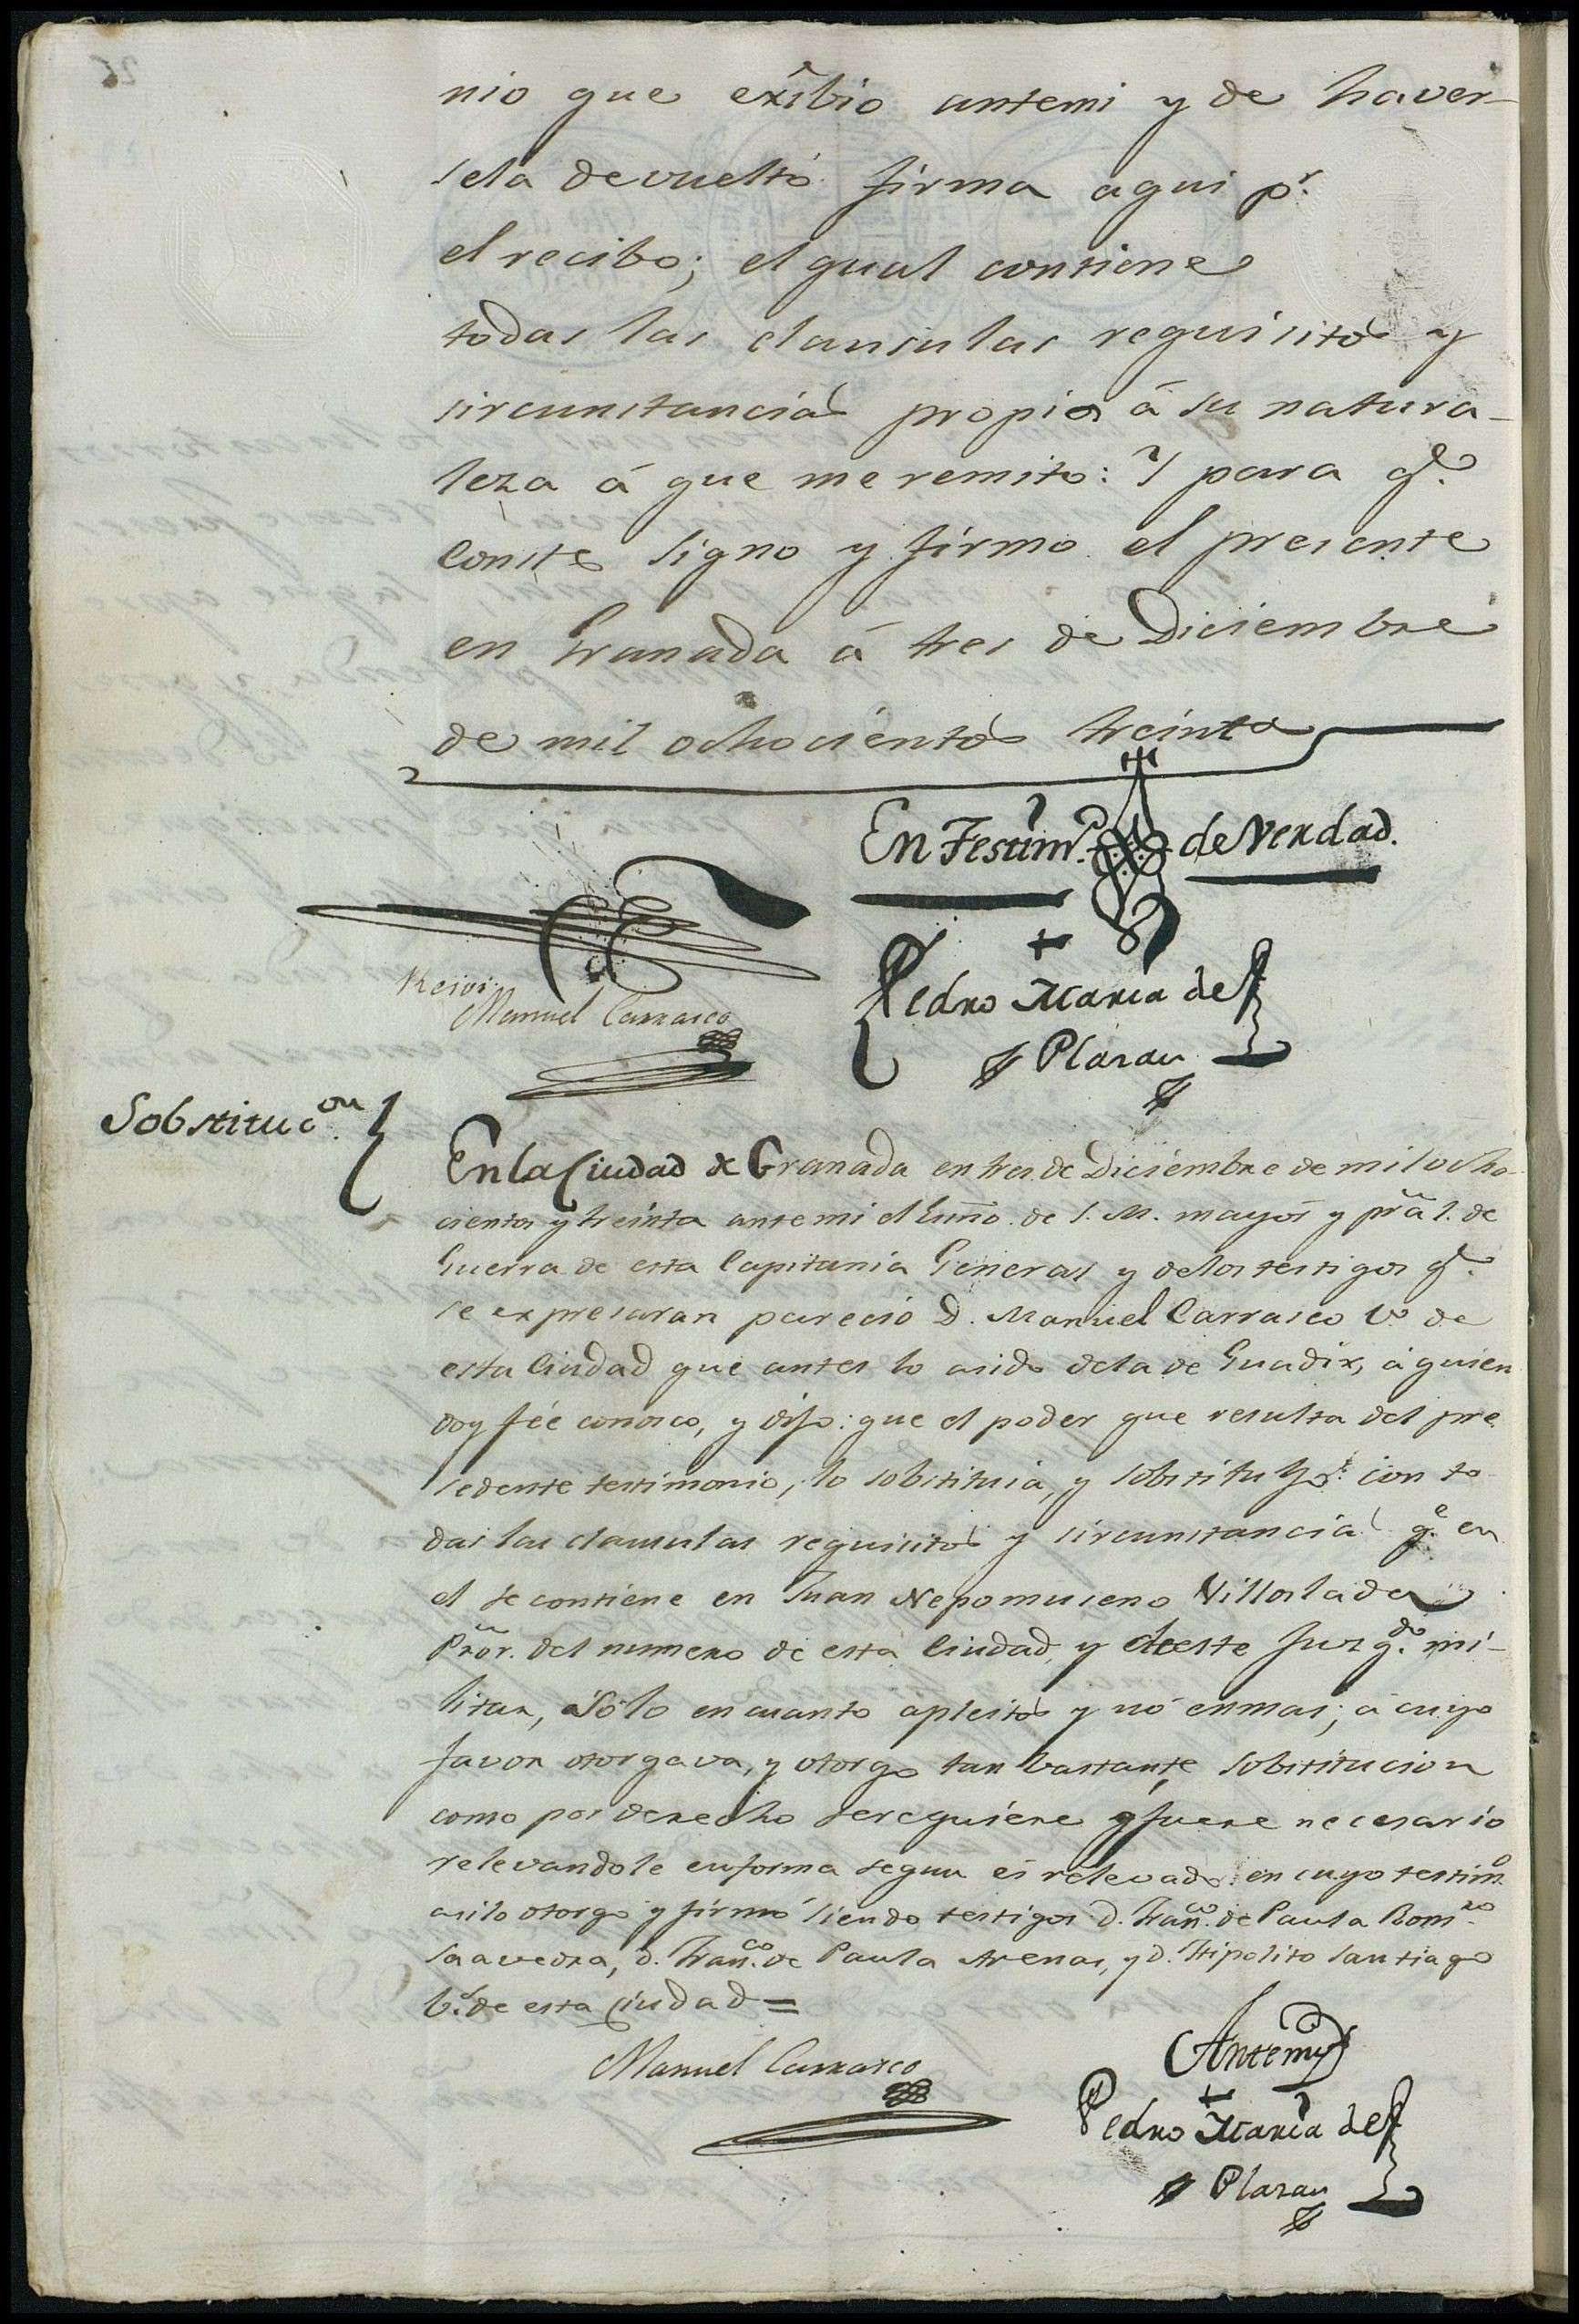 nio que exîbio antemi y de haver-
sela devuelto firma aqui pr.
el recibo; el qual contiene
todas las clausulas requisitos y
sircunstancias propias á su natura-
leza á que me remito: Y para qe.
Conste signo y firmo el presente
en Granada á tres de Diciembre
de mil ochocientos treinta
En Testimo. de Verdad.
Recivi
Manuel Carrasco
Pedro Maria de
Plasau
Substitucon.
En la Ciudad de Granada en tres de Diciembre de mil ocho-
cientos y treinta antemi el Essno. de S. M. mayor y pral. de
Guerra de esta Capitania General y delos testigos qe.
se expresaran parecio D. Manuel Carrasco vo. de
esta Ciudad que antes lo asido dela de Guadix, á quien
doy fée conosco, y dijo: que el poder que resulta del pre
sedente testimonio, lo sobstituia, y sobstituyo. con to
das las clausulas requisitos y sircunstancias qe. en
el se contiene en Juan Nepomuseno Villoslada
Pror. del numero de esta Ciudad, y de este Juzgdo. mi-
litar, Sólo en cuanto apleitos y nó enmas; á cuyo
favor otorgava, y otorgo tan bastante sobstitucion
como por derecho serequiere y fuere necesario
relevandole enforma segun és relevado: en cuyo testimo.
asilo otorgo y firmó siendo testigos d. Franco. de Paula Romro.
Saavedra, d. Franco. de Paula Arenas, y d. Hipolito Santiago
vs. de esta Ciudad =
Manuel Carrasco
Antemi
Pedro Maria de
Plasau